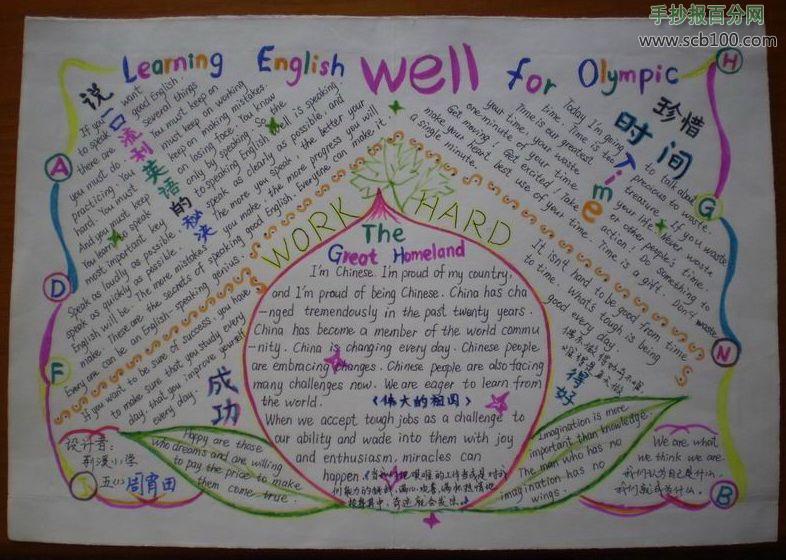 手抄报百分网
www.scb100.com
Learning English well for Olympic
说一口流利英语的秘诀
If you want
to speak good English.
there are several things
you must do. You must keep on
practicing. You must keep on working
hard. You must keep on making mistakes.
And you must keep on losing face. You know
You learn to speak only by speaking. So the
most important key to speaking English well is speaking.
Speak as loudly as possible. Speak as clearly as possible. and
speak as quickly as possible. The more you speak, the better your
English will be. The more mistakes you make, the more progress you will
make. These are the secrets of speaking good English. Everyone can make it.
Every one can be an English-speaking genius.
If you want to be sure of success, you have
to make sure that you study every
day, that you improve yourself
every day.
成功
珍惜
时间
Time
Today I'm going to talk about
time. Time is too precious to waste.
Time is our greatest treasure. If you waste
your time, your waste your life. Never waste
one minute of your time or other people's time.
Get moving! Get excited! Take action. Do something to
make your heart best use of your time. Time is a gift. Don't waste
a single minute.
It isn't hard to be good from time
to time. What's tough is being
good every day.
得好
WORK HARD
The
Great Homeland
I'm Chinese. I'm proud of my country,
and I'm proud of being Chinese. China has cha
-nged tremendously in the past twenty years.
China has become a member of the world commu
-nity. China is changing every day. Chinese people
are embracing changes. Chinese people are also facing
many challenges now. We are eager to learn from
the world. 《伟大的祖国》
When we accept tough jobs as a challenge to
our ability and wade into them with joy
and enthusiasm, miracles can
happen.
Happy are those
who dreams and are willing
to pay the price to make
them come true.
Imagination is more
important than knowledge.
The man who has no
imagination has no
wings.
设计者:
荆溪小学
五(1) 周霄田
We are what
we think we are.
我们认为自己是什么.
我们就成为什么.
A
D
F
J
H
G
N
B